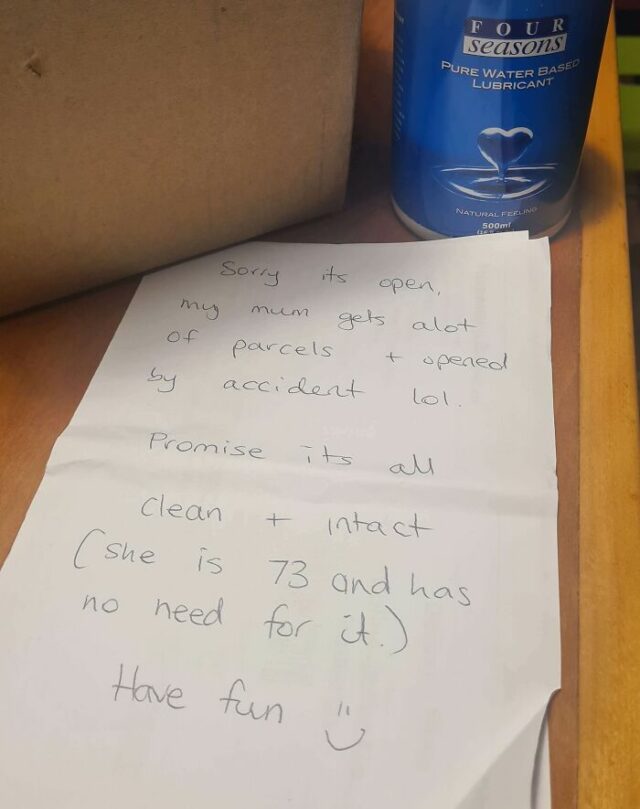 FOUR
seasons
PURE WATER BASED
LUBRICANT
NATURAL FEELING
500ml
Sorry its open,
my mum gets alot
of parcels + opened
by accident lol.
Promise its all
clean + intact
(she is 73 and has
no need for it.)
Have fun